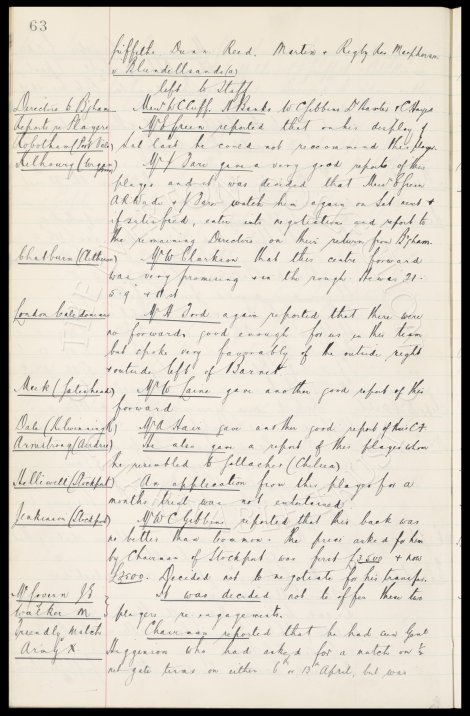 63
Griffiths Dunn Reed. Martin & Rigby Res Macpherson
v Blundellsands (a)
left to Staff
Directors to B'ham Messrs W C Cuff. A Banks W C Gibbins Dr Baxter & C Hayes
Reports re Players Mr E Green reported that on his display of
Robotham (Port Vale) Sat last he could not recommend this player.
Kilhourg (Wigan Boro) Mr J Fare gave a very good report of this
player and it was decided that Messrs E Green
A & J Fare watch him again on Sat next &
if satisfied, enter into negotiation and report to
the remaining Directors on their return from B'gham.
Chatburn (Atherton) Mr W Clarkson that this centre forward
was very promising & in the rough. He was 21-
5.9 & 11 st
London Caledonians Mr H Ford again reported that there were
no forwards good enough for us in this team
but spoke very favorably of the outside right
& outside left of Barnet
Meek (Gateshead) Mr W Laine gave another good report of this
forward
Dale (Kilwinning) Mr A Hair gave another good report of this C.F.
Armstrong (Airdrie) He also gave a report of this player whom
he resembled to Gallacher (Chelsea)
Holliwell (Stockport) An application from this player for a
months trial was not entertained
Jenkinson (Stockport) Mr W C Gibbins reported that this back was
no better than common. The price asked for him
by Chairman of Stockport was first £3500 & now
£2500. Decided not to negotiate for his transfer.
McGovern J E It was decided not to offer these two
Walker M players re-engagements.
Friendly Match Chairman reported that he had seen
Army X Higginson who had asked for a match on ½
net gate terms on either 6 or 13 April, but was